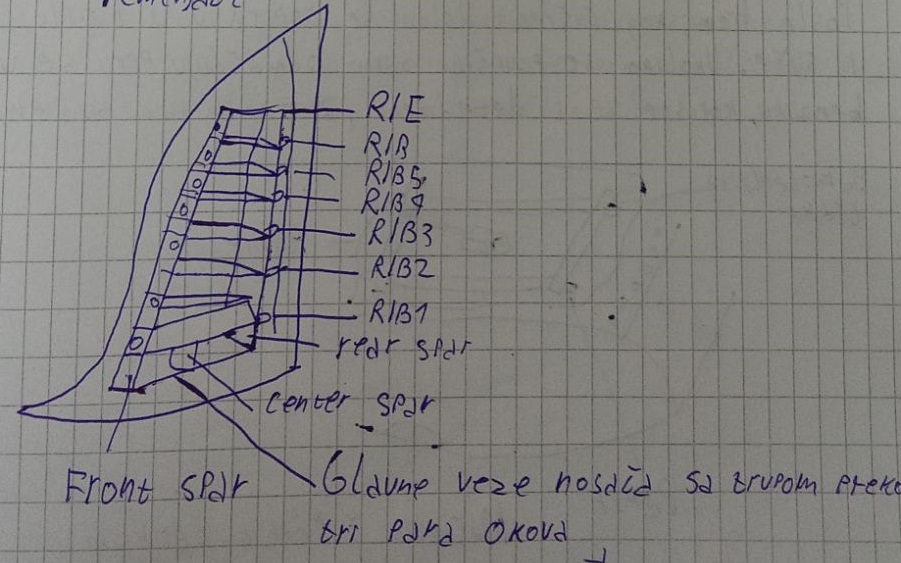 RIE
RIB
RIB5
RIB4
RIB3
RIB2
RIB1
rear spar
center spar
Front spar
Glavne veze nosača sa trupom preko
tri para okova